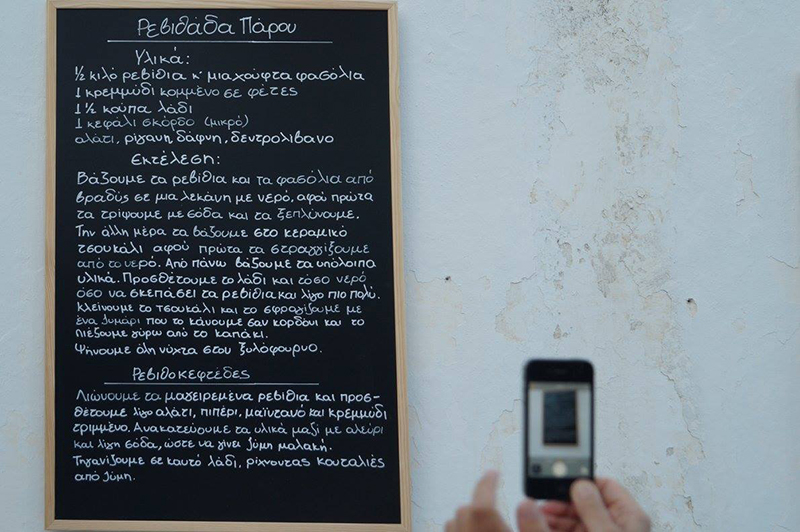 Ρεβιθάδα Πάρου
Υλικά:
½ κιλό ρεβίθια κ' μια χούφτα φασόλια
1 κρεμμύδι κομμένο σε φέτες
1 ½ κούπα λάδι
1 κεφάλι σκόρδο (μικρό)
αλάτι, ρίγανη δάφνη, δεντρολίβανο
Εκτέλεση:
Βάζουμε τα ρεβίθια και τα φασόλια από
βραδύς σε μια λεκάνη με νερό, αφού πρώτα
τα τρίψουμε με σόδα και τα ξεπλύνουμε.
Την άλλη μέρα τα βάζουμε στο κεραμικό
τσουκάλι αφού πρώτα τα στραγγίξουμε
από το νερό. Από πάνω βάζουμε τα υπόλοιπα
υλικά. Προσθέτουμε το λάδι και τόσο νερό
όσο να σκεπάσει τα ρεβίθια και λίγο πιο πολύ.
Κλείνουμε το τσουκάλι και το σφραγίζουμε με
ένα ζυμάρι που το κάνουμε σαν κορδόνι και το
πιέζουμε γύρω από το καπάκι.
Ψήνουμε όλη νύχτα στον ξυλόφουρνο.
Ρεβιθοκεφτέδες
Λιώνουμε τα μαγειρεμένα ρεβίθια και προσ-
θέτουμε λίγο αλάτι, πιπέρι, μαϊντανό και κρεμμύδι
τριμμένο. Ανακατεύουμε τα υλικά μαζί με αλεύρι
και λίγη σόδα, ώστε να γίνει ζύμη μαλακή.
Τηγανίζουμε σε καυτό λάδι, ρίχνοντας κουταλιές
από ζύμη.